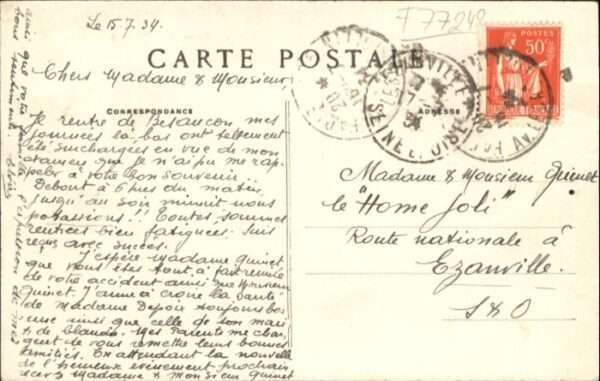 Le 15.7.34.
F77248
CARTE POSTALE
50c
Chers Madame & Monsieur
CORRESPONDANCE
ADRESSE
EZANVILLE
SEINE ET OISE
Je rentre de Besançon mes
journées là bas ont tellement
été surchargées en vue de mon
examen que je n'ai pu me rap-
peler à votre bon souvenir
Debout à 6 hres du matin
jusqu'au soir minuit nous
potassions!! Toutes sommes
rentrées bien fatiguées. Suis
reçue avec succès.
J'espère Madame Quinet
que vous êtes tout à fait remise
de votre accident ainsi que Monsieur
Quinet. J'aime à croire la santé
de Madame toujours bon
ne ainsi que celle de son mari
& de Claudie. Mes Parents me char
gent de vous remettre leurs bonnes
amitiés. En attendant la nouvelle
de l'heureux évènement prochain
recevez Madame & Monsieur Quinet
ainsi que votre
bons sentiments
l'expression de mes
Madame & Monsieur Quinet
le "Home Joli"
Route nationale à
Ezanville.
S&O